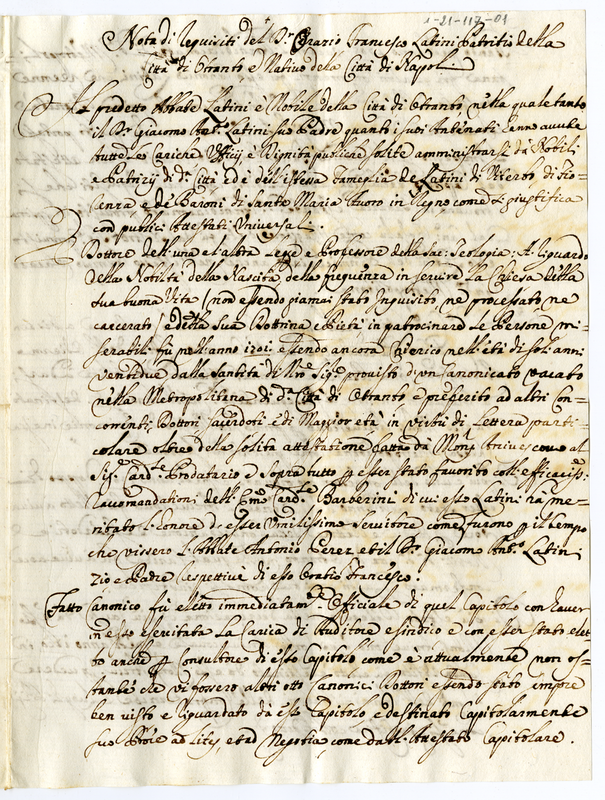 1-21-117-01
Nota di Requisiti del Sr. Orazio Francesco Latini Patritio della
Città di Otranto e Nativo della Città di Napoli
Il predetto Abbate Latini è Nobile della Città di Otranto nella quale tanto
il Dr. Giacomo Anto. Latini suo Padre quanto i suoi Antenati anno avute
tutte le Cariche Officij e Dignità publiche solite amministrarsi da Nobili
e Patrizij di da. Città ed è dell'istessa fameglia de Latini di Viterbo di Fio=
renza e de Baroni di Santa Maria Nuovo in Regno come si giustifica
con publici Attestati Universali.
Dottore dell'una e l'altra Legge e Professore della Sac: Teologia: A riguardo
della Nobiltà della Nascita della frequenza in servire la Chiesa della
sua buona Vita (non essendo giamai stato Inquisito ne processato ne
carcerato) e della sua Dottrina e Pietà in patrocinare le Persone mi=
serabili fù nell'anno 1701. essendo ancora Chierico nell'età di soli anni
ventidue dalla Santità di Nro. Sigre. provisto d'un Canonicato vacato
nella Metropolitana di da. Città di Otranto e preferito ad altri Con=
correnti Dottori Sacerdoti e di Maggior età in virtù di Lettera parti=
colare oltre della solita attestatione fatta da Monsr. Arcivescovo al
Sigr. Cardle. Prodatario e sopra tutto per esser stato favorito coll'efficaciss:
raccomandationi dell'Emo. Cardle. Barberini di cui esso Latini ha me=
ritato l'onore d'esser Umilissimo servitore come furono per il tempo
che vissero l'Abbate Antonio Perez et il Dr. Giacomo Anto. Latini
Zio e Padre respettive di esso Oratio Francesco.
Fatto Canonico fù eletto immediatamte. Officiale di quel Capitolo con haver
in esso esercitata la Carica di Auditore e sindico e con esser stato elet=
to anche per Consultore di esso Capitolo come è attualmente non os=
tante che vi fossero altri otto Canonici Dottori essendo stato sempre
ben visto e riguardato da esso Capitolo e destinato Capitolarmente
suo Prore ad Lites, et ad Negotia, come dall'Attestato Capitolare.